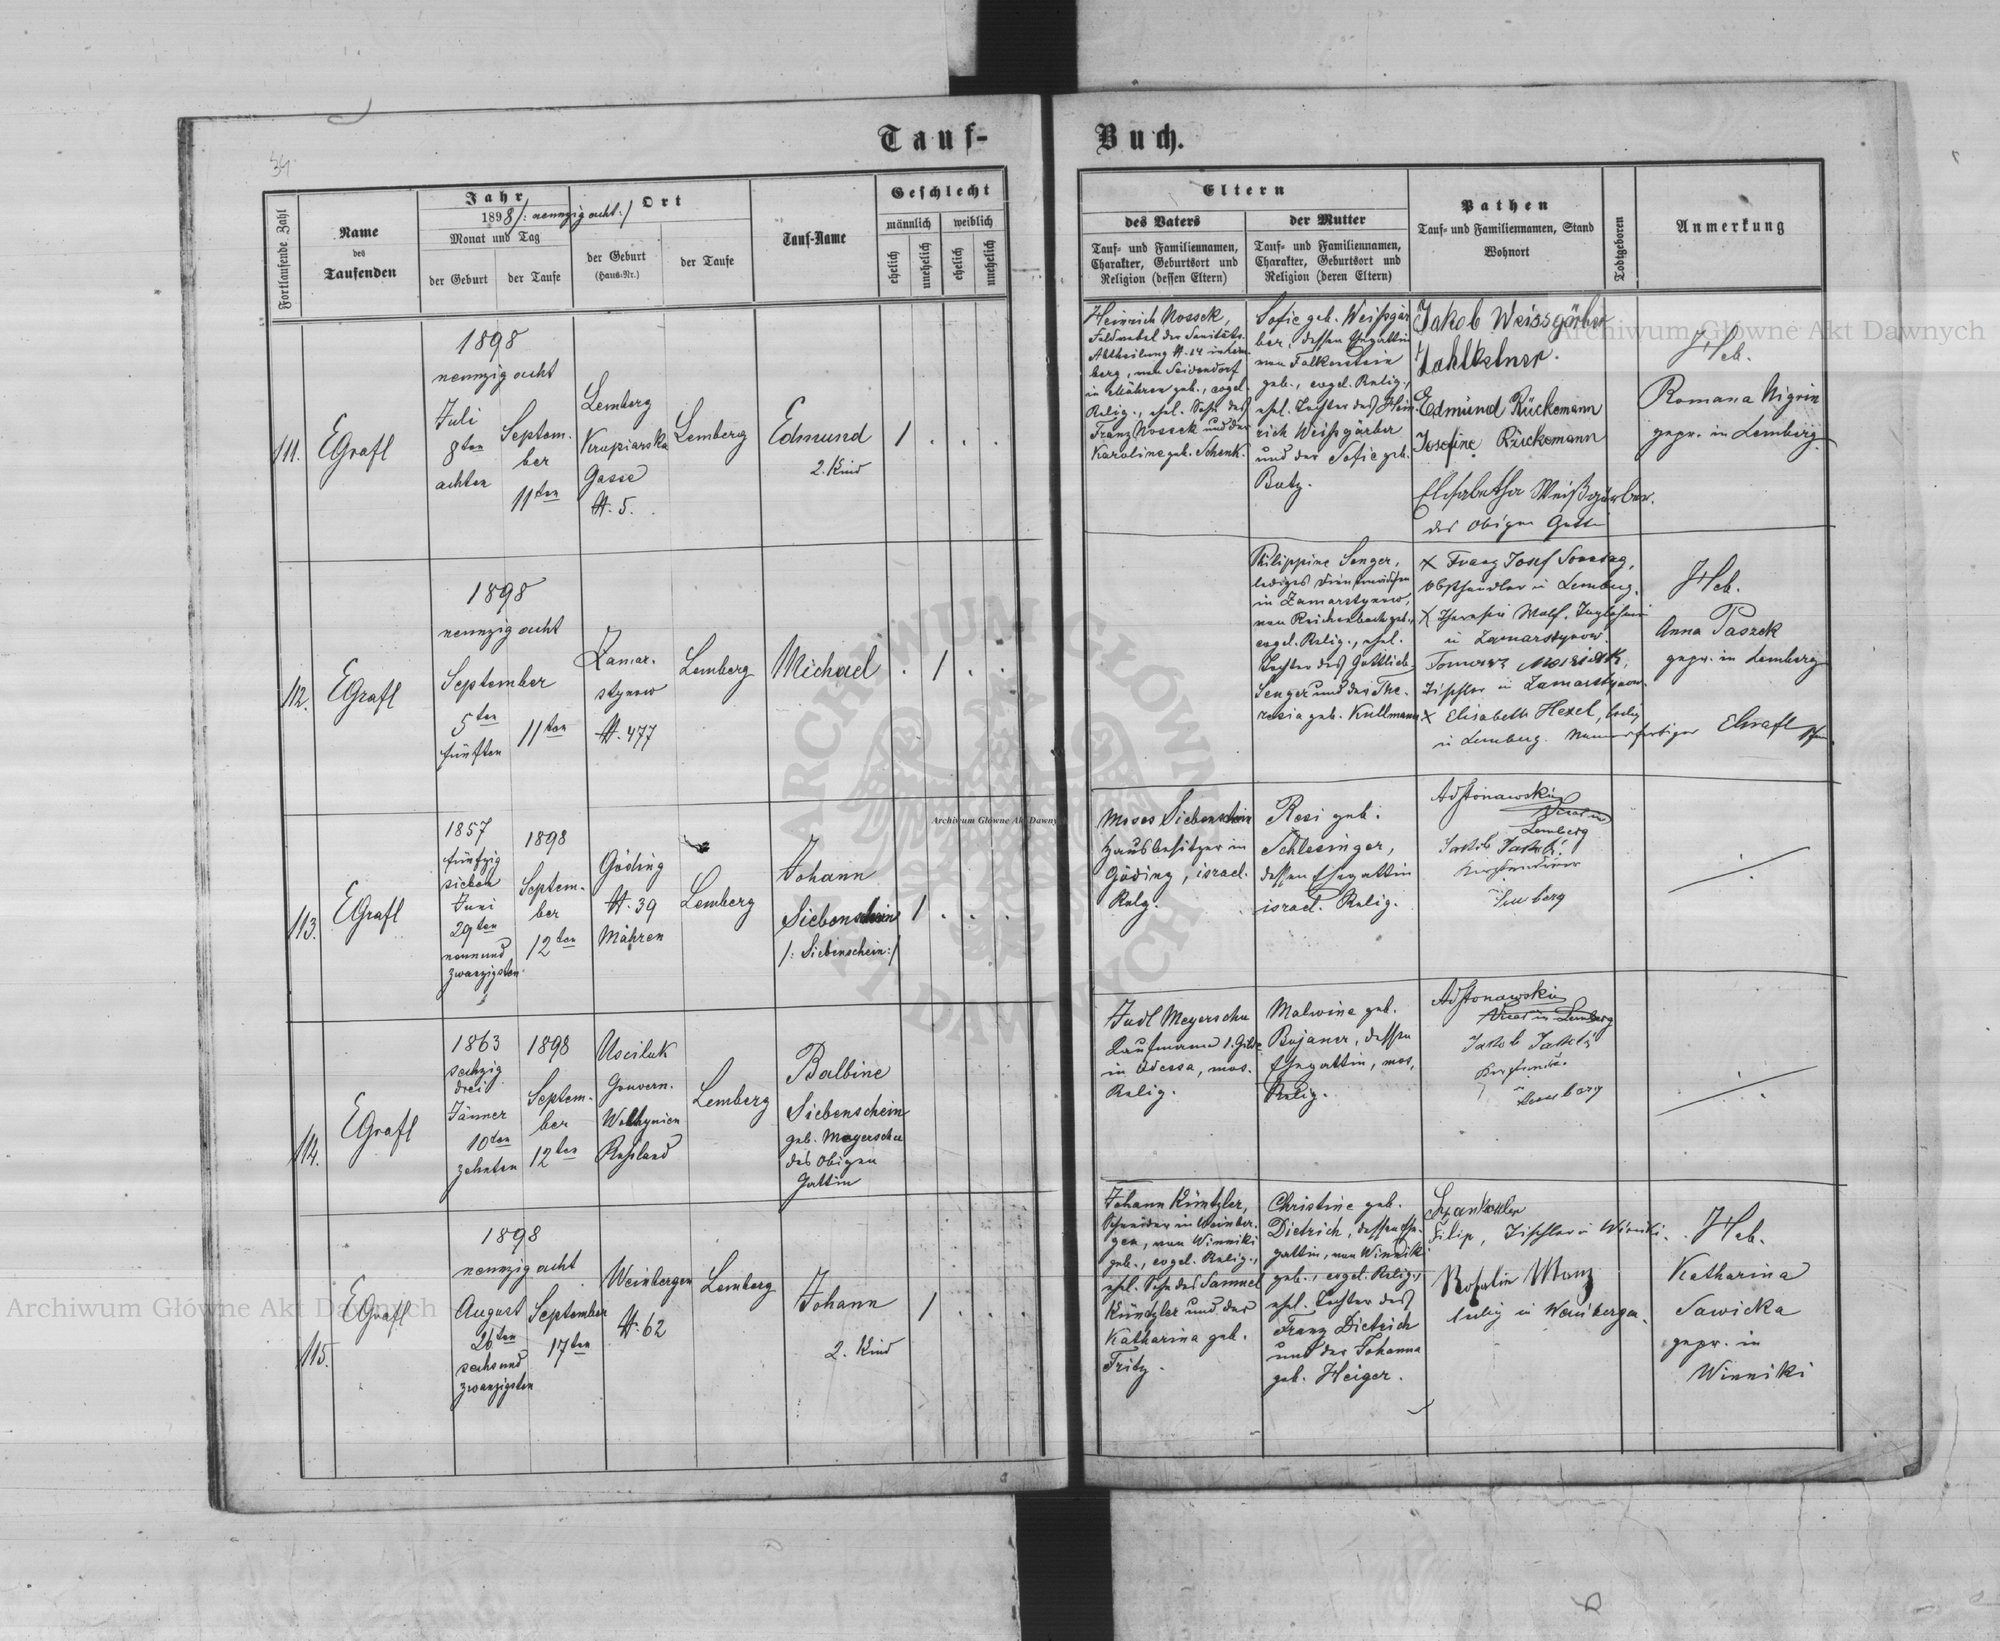 Tauf-
Buch.
34.
Fortlaufende Zahl
Name
des
Taufenden
Jahr
1898 /: neunzig acht :/
Monat und Tag
der Geburt
der Taufe
Ort
der Geburt
(Haus-Nr.)
der Taufe
Tauf-Name
Geschlecht
männlich
weiblich
ehelich
unehelich
ehelich
unehelich
Eltern
des Vaters
Tauf- und Familiennamen,
Charakter, Geburtsort und
Religion (dessen Eltern)
der Mutter
Tauf- und Familiennamen,
Charakter, Geburtsort und
Religion (deren Eltern)
Pathen
Tauf- und Familiennamen, Stand
Wohnort
Todtgeboren
Anmerkung
111.
EGrafl
1898
neunzig acht
Juli
8ten
achten
Septem-
ber
11ten
Lemberg
Krupiarska
Gasse
N. 5.
Lemberg
Edmund
2. Kind
1
Heinrich Nossek,
Feldwebel der Sanitäts
Abtheilung N. 14 in Lem
berg, von Seidendorf
in Mähren geb., evgel.
Relig., ehel. Sohn des
Franz Nossek und der
Karoline geb. Schenk.
Sofie geb. Weißgär
ber, dessen Ehegattin
von Falkenstein
geb., evgel. Relig.,
ehel. Tochter des Hein-
rich Weißgärber
und der Sofie geb.
Butz.
Jakob Weissgärber
Zahlkelner.
Edmund Rückemann
Josefine Rückemann
Elisabetha Weißgärber.
des obigen Gattin
Heb.
Romana Nigrin
gepr. in Lemberg
112.
EGrafl
1898
neunzig acht
September
5ten
fünften
11ten
Zamar-
stynow
N. 477
Lemberg
Michael
1
Philippine Senger,
lediges Dienstmädchen
in Zamarstynow,
von Reichenbach geb.,
evgel. Relig., ehel.
Tochter des Gottlieb
Senger und der The-
resia geb. Kullmann
X Franz Josef Sonntag,
Obsthändler in Lemberg.
X Theresia Wolf,
in Zamarstynow.
Tischler in Zamarstynow.
X Elisabeth Hexel, ledig
in Lemberg. Namensfertiger EGrafl
Heb.
Anna Paszek
gepr. in Lemberg
113.
EGrafl
1857
fünfzig
sieben
Juni
29ten
neunund
zwanzigsten
1898
Septem-
ber
12ten
Göding
N. 39
Mähren
Lemberg
Johann
Siebenschein
/: Siebenschein :/
1
Moses Siebenschein
Hausbesitzer in
Göding, israel.
Relg.
Resi geb.
Schlesinger,
dessen Ehegattin
israel. Relig.
Lemberg
Kirchendiener
Lemberg
114.
EGrafl
1863
sechzig
drei
Jänner
10ten
zehnten
1898
Septem-
ber
12ten
Usciluk
Gouvern.
Wolhynien
Rußland
Lemberg
Balbine
Siebenschein
geb. Meyerscha
des obigen
Gattin
Judl Meyerscha
Kaufmann 1. Gilde
in Odessa, mos.
Relig.
Malwine geb.
Bojaner, dessen
Ehegattin, mos.
Relig.
Vicar in Lemberg
Lemberg
115.
EGrafl
1898
neunzig acht
August
26ten
sechsund
zwanzigsten
September
17ten
Weinbergen
N. 62
Lemberg
Johann
2. Kind
1
Johann Küntzler,
Schneider in Weinber-
gen, von Winniki
geb., evgel. Relig.,
ehel. Sohn des Samuel
Küntzler und der
Katharina geb.
Fritz.
Christine geb.
Dietrich, dessen Ehe-
gattin, von Winniki
geb., evgel. Relig.,
ehel. Tochter des
Franz Dietrich
und der Johanna
geb. Heiger.
Filip, Tischler in Winniki.
Rosalia Manz
ledig in Weinbergen.
Heb.
Katharina
Sawicka
gepr. in
Winniki
Archiwum Główne Akt Dawnych
Archiwum Główne Akt Dawnych
Archiwum Główne Akt Dawnych
ARCHIWUM GŁÓWNE AKT DAWNYCH